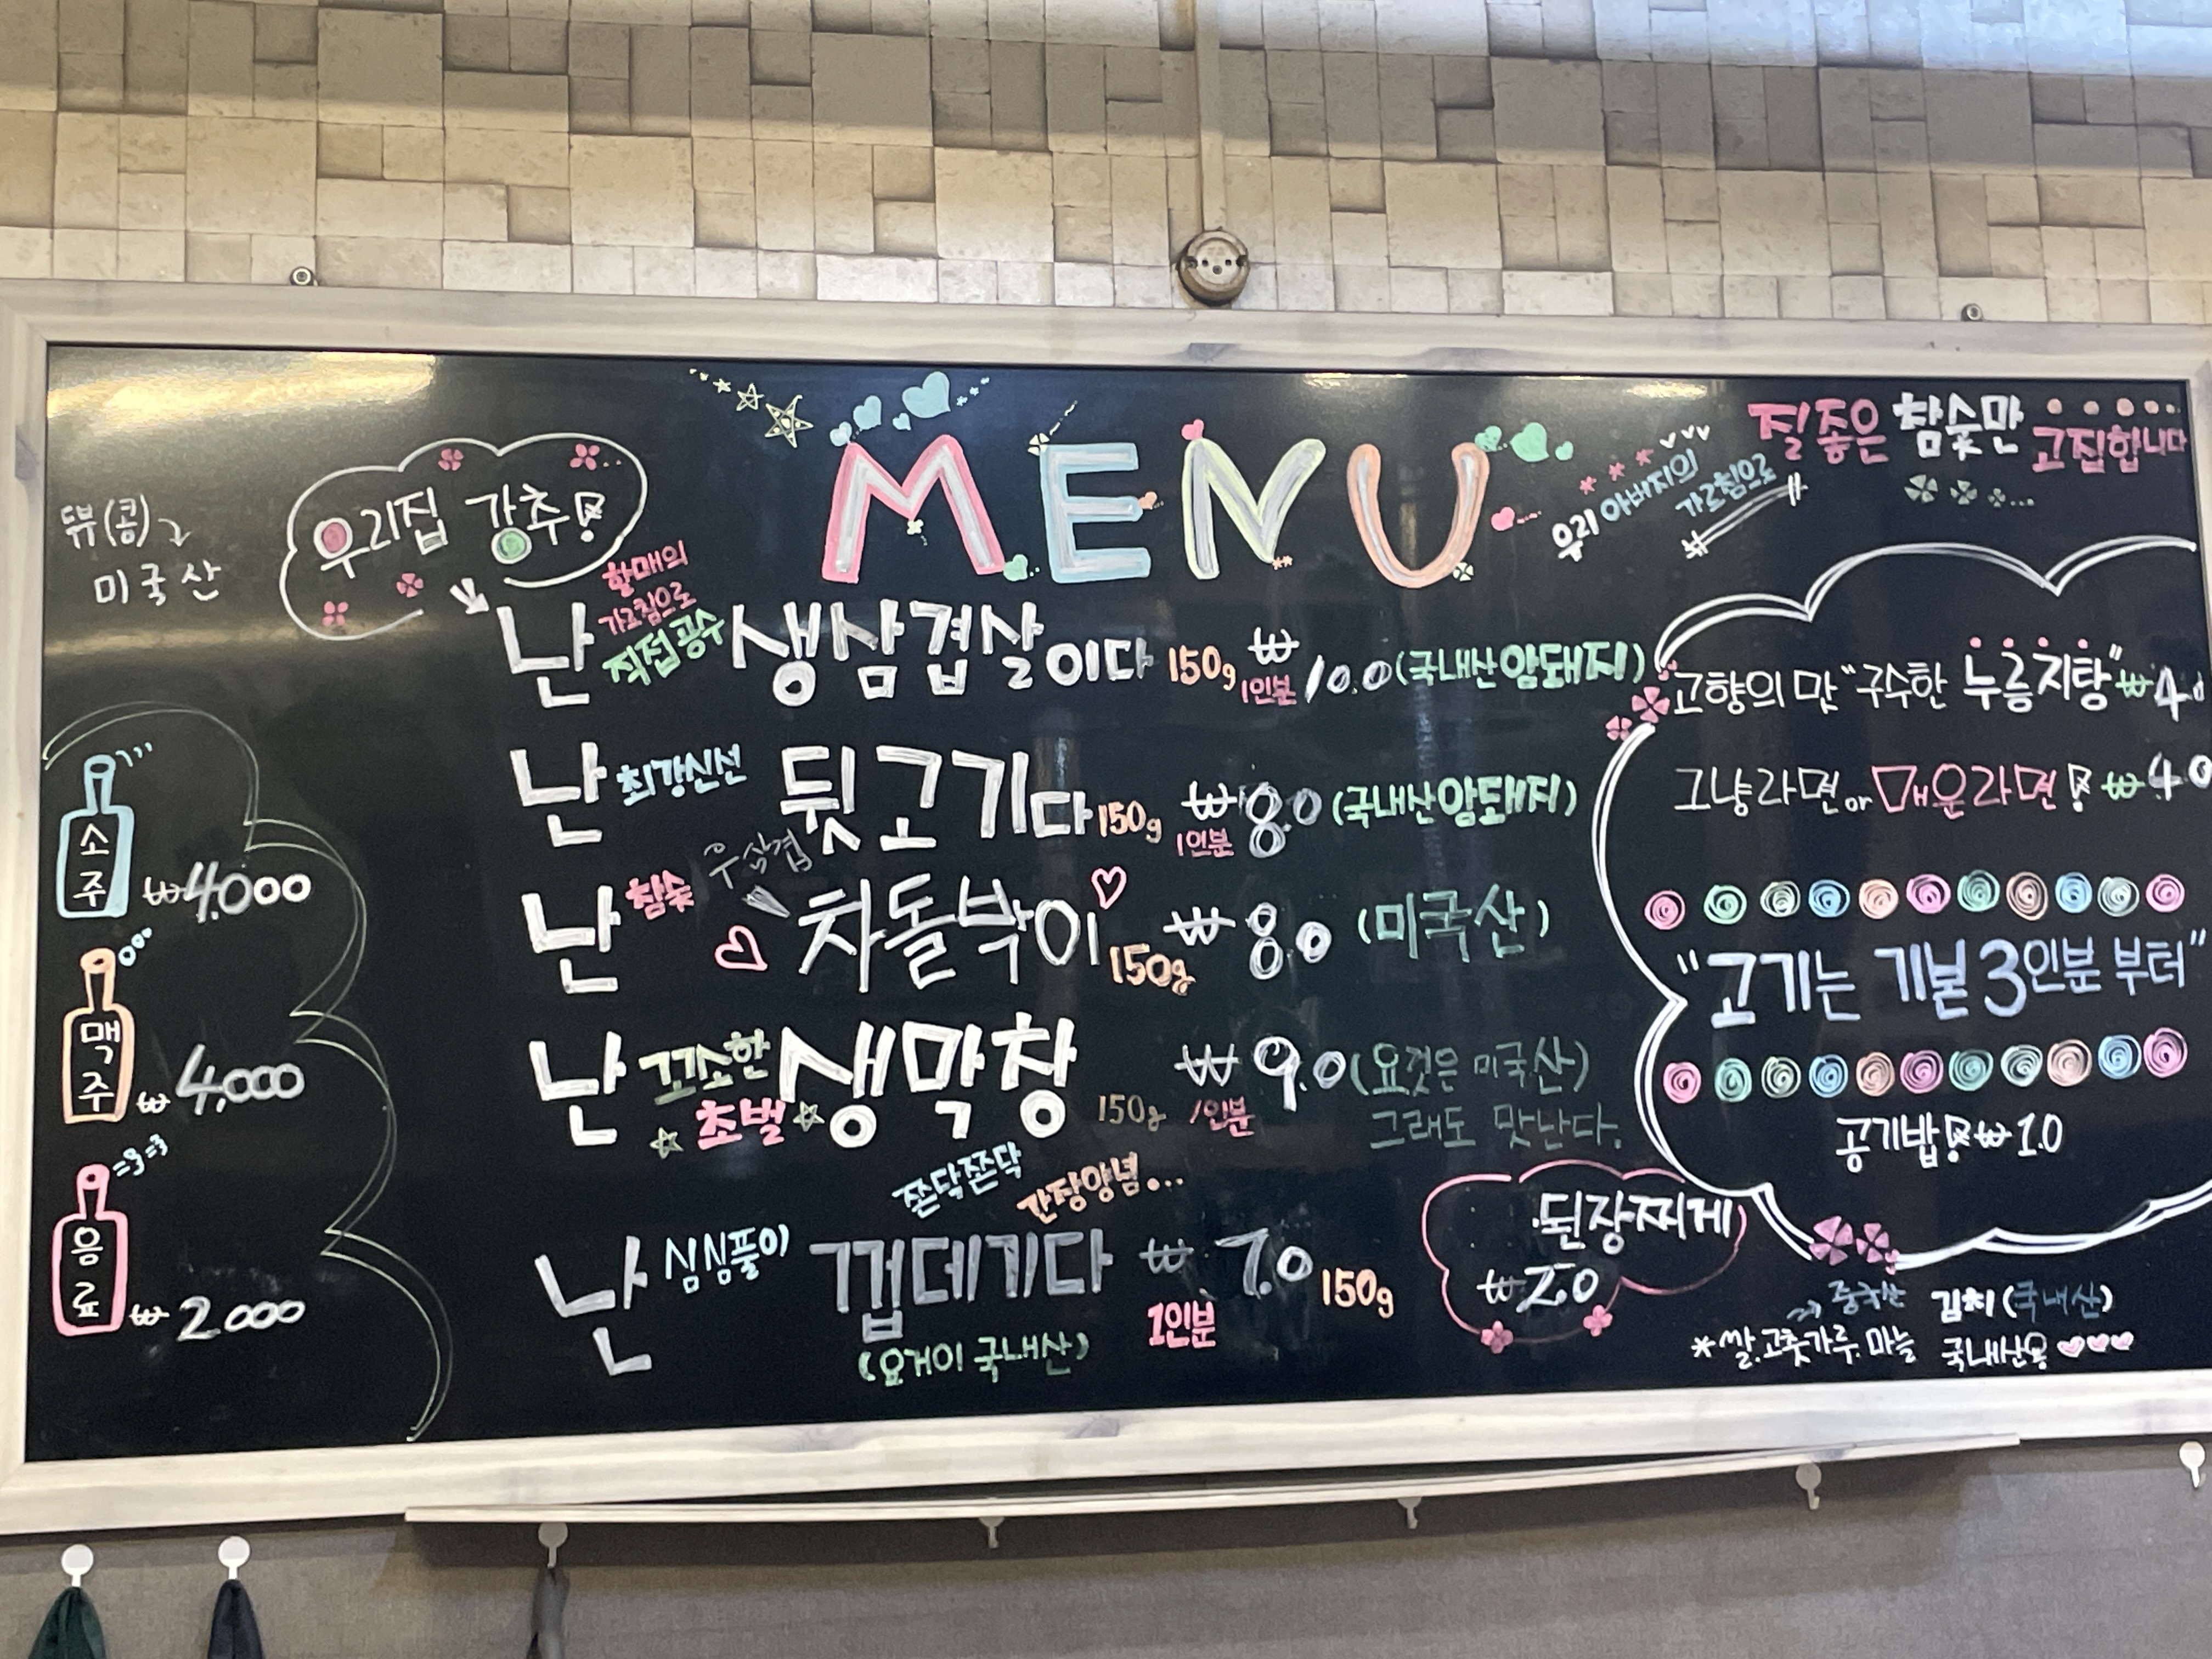 MENU
질좋은 참숯만 고집합니다
우리 아버지의
가르침으로
두부(콩)
미국산
우리집 강추!
할매의
가르침으로
직접공수
난 생삼겹살이다 150g ₩10.0 (국내산암퇘지)
1인분
난 최강신선 뒷고기다 150g ₩8.0 (국내산암퇘지)
1인분
우삼겹
난 참숯 차돌박이 150g ₩8.0 (미국산)
난 꼬소한 생막창 150g ₩9.0 (요것은 미국산)
초벌 1인분 그래도 맛난다.
쫀닥쫀닥
간장양념...
난 심심풀이 껍데기다 ₩7.0 150g
1인분
(요거이 국내산)
소주 ₩4.000
맥주 ₩4,000
음료 ₩2.000
고향의 맛 "구수한 누룽지탕" ₩4.
그냥라면 or 매운라면! ₩4.0
"고기는 기본 3인분 부터"
공기밥! ₩1.0
된장찌게
₩2.0
중국산 김치(국내산)
*쌀.고춧가루.마늘 국내산용